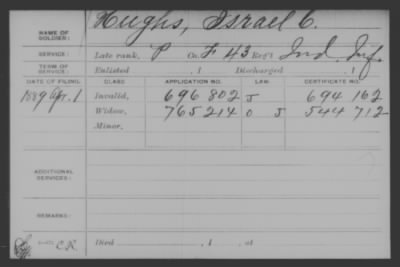 NAME OF SOLDIER: Hughs, Israel C.
SERVICE: Late rank, P Co. F 43 Reg't Ind. Inf.
TERM OF SERVICE: Enlisted , 1 Discharged , 1
DATE OF FILING. CLASS APPLICATION NO. LAW CERTIFICATE NO.
1889 Apr. 1 Invalid, 696 802 J 694 162
Widow, 765214 O J 544 712
Minor,
ADDITIONAL SERVICES:
REMARKS:
C.R. Died , 1 , at